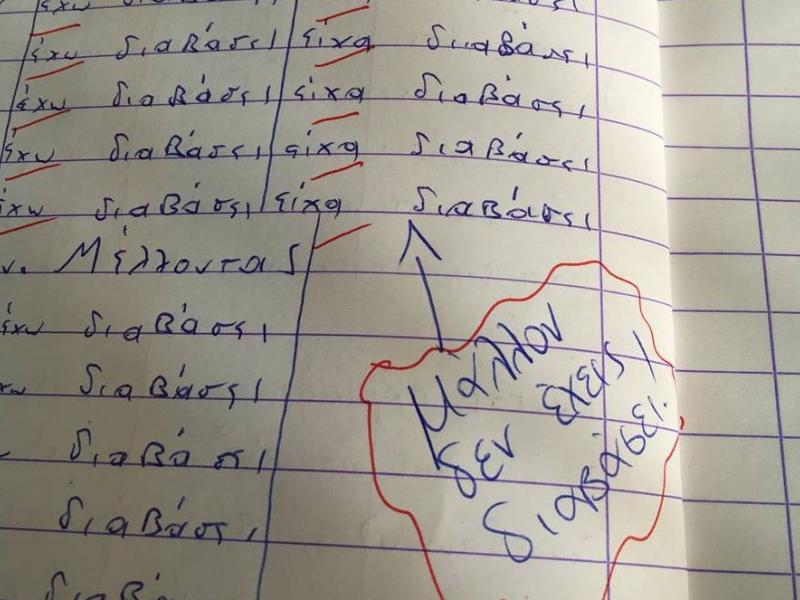 έχω διαβάσει είχα διαβάσει
έχω διαβάσει είχα διαβάσει
έχω διαβάσει είχα διαβάσει
έχω διαβάσει είχα διαβάσει
Μέλλοντας
έχω διαβάσει
διαβάσει
διαβάσει
διαβάσει
Μάλλον
δεν έχεις
διαβάσει.